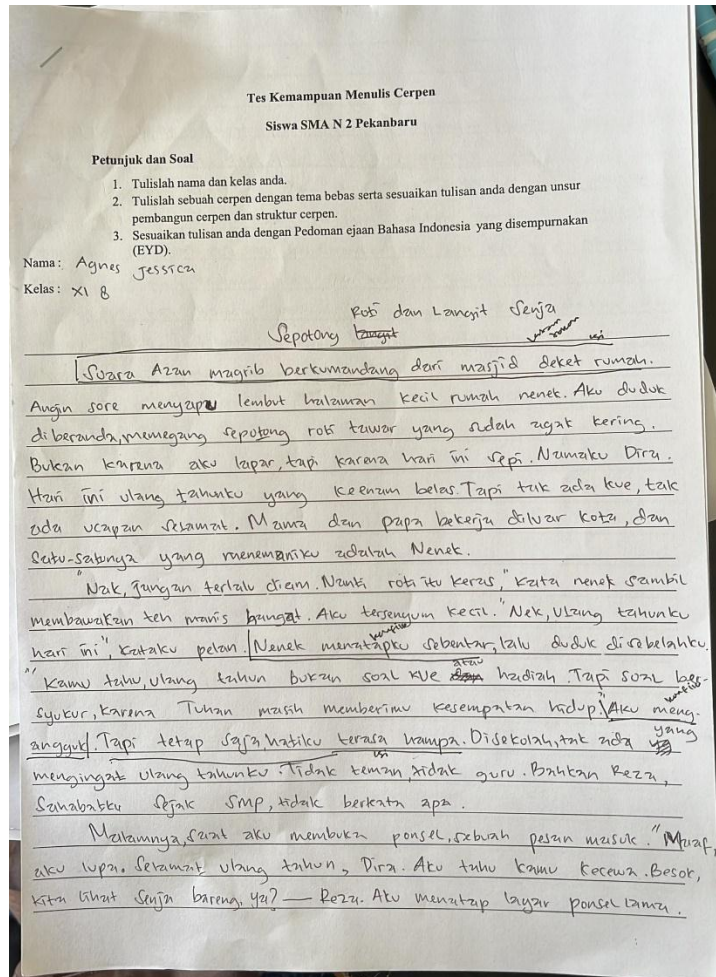 Tes Kemampuan Menulis Cerpen
Siswa SMA N 2 Pekanbaru
Petunjuk dan Soal
1. Tulislah nama dan kelas anda.
2. Tulislah sebuah cerpen dengan tema bebas serta sesuaikan tulisan anda dengan unsur
pembangun cerpen dan struktur cerpen.
3. Sesuaikan tulisan anda dengan Pedoman ejaan Bahasa Indonesia yang disempurnakan
(EYD).
Nama : Agnes Jessica
Kelas : XI 8
Roti dan Langit Senja
Sepotong
Suara Azan magrib berkumandang dari masjid deket rumah.
Angin sore menyapu lembut halaman kecil rumah nenek. Aku duduk
diberanda, memegang sepotong roti tawar yang sudah agak kering.
Bukan karena aku lapar, tapi karena hari ini sepi. Namaku Dira.
Hari ini ulang tahunku yang keenam belas. Tapi tak ada kue, tak
ada ucapan selamat. Mama dan papa bekerja diluar kota, dan
satu-satunya yang menemaniku adalah Nenek.
"Nak, jangan terlalu diam. Nanti roti itu keras," kata nenek sambil
membawakan teh manis hangat. Aku tersenyum kecil. "Nek, ulang tahunku
hari ini", kataku pelan. Nenek menatapku sebentar, lalu duduk disebelahku.
"Kamu tahu, ulang tahun bukan soal kue atau hadiah. Tapi soal ber-
syukur, karena Tuhan masih memberimu kesempatan hidup." Aku meng-
angguk. Tapi tetap saja, hatiku terasa hampa. Disekolah, tak ada yang
mengingat ulang tahunku. Tidak teman, tidak guru. Bahkan Reza,
Sahabatku sejak SMP, tidak berkata apa.
Malamnya, saat aku membuka ponsel, sebuah pesan masuk. "Maaf,
aku lupa. Selamat ulang tahun, Dira. Aku tahu kamu kecewa. Besok,
kita lihat senja bareng, ya? — Reza. Aku menatap layar ponsel lama.